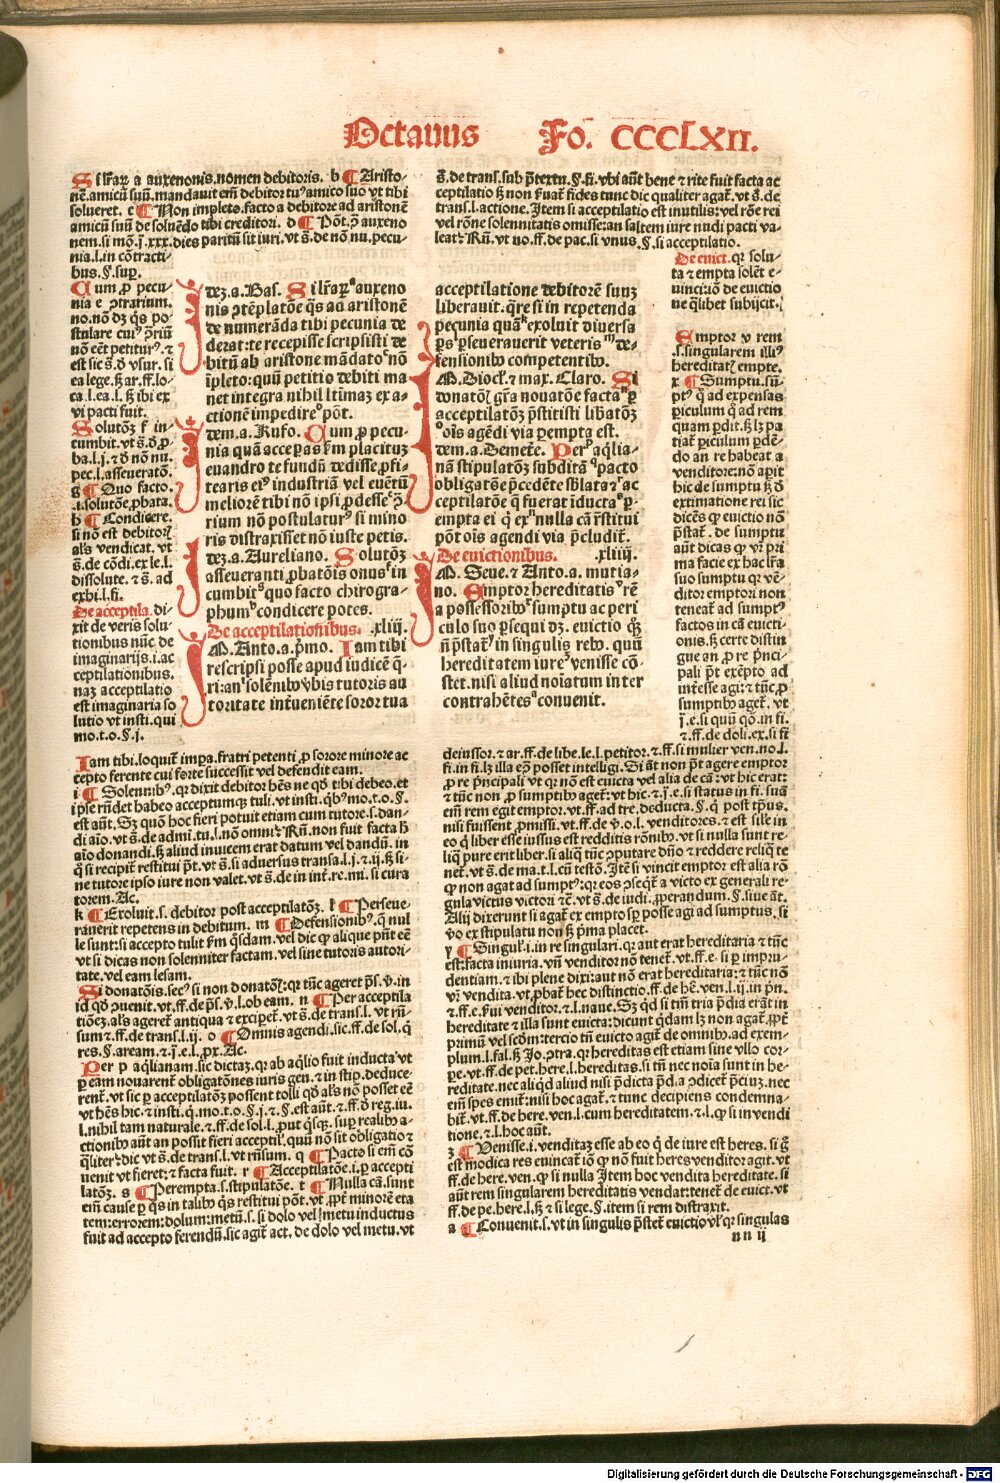 Octauus Fo. CCCLXII.
Si lr̄aꝝ a auxenonis, nomen debitoris. b ¶ Aristo-
nē. amicū suū. mandauit em̄ debitor tuꝰ amico suo vt tibi
solueret. c ¶ Non impleto. facto a debitore ad aristonē
amicū suū de soluēdo tibi creditori. d ¶ Pōt. ꝑ auxeno
nem. si mō. j. xxx. dies paritū sit iuri. vt s̄. de nō nu. pecu-
nia. l. in cōtracti-
bus. §. sup̄.
Cum ꝓ pecu-
nia e ɔtrarium.
no. nō dꝫ q̄s po-
stulare cuiꝰ ꝯriū
nō eēt petiturꝰ. ⁊
est sic s̄. d̄ vsur. si
ea lege. ꝫ ar. ff. lo-
ca. l. ea l. ꝫ ibi ex
vi pacti fuit.
Solutōꝫ f in-
cumbit. vt s̄. d̄ ꝓ-
ba. l. j. ⁊ d̄ nō nu.
pec. l. asseueratō.
g ¶ Quo facto.
.i. solutōe ꝓbata.
h ¶ Condicere.
si nō est debitorꝫ
als vendicat. vt
s̄. de cōdi. ex le. l.
dissolute. ⁊ s̄. ad
exbi. l. fi.
De acceptila. di-
xit de veris solu-
tionibus nūc de
imaginarijs. i. ac
ceptilationibus.
naꝫ acceptilatio
est imaginaria so
lutio vt insti. qui
mo. t. o. §. j.
Idez. a. Bas. Si lr̄aꝝ a auxeno
nis ɔtēplatōe q̄s au aristonē
de numerāda tibi pecunia de
derat: te recepisse scripsisti de
bitū ab aristone mādato c nō
īpleto: quū petitio debiti ma
net integra nihil ltīmaꝫ ex a-
ctionē impedire d ꝓ pōt.
Idem. a. Rufo. Cum ꝓ pecu-
nia quā acceꝑas ꝟm placituꝫ
euandro te fundū dedisse ꝓfi-
tearis eiꝰ industriā vel euētū
meliorē tibi nō ipsi ꝓdesse e ꝯ-
rium nō postulaturꝰ si mino
ris distraxisset nō iuste petis.
Idez. a. Aureliano. Solutōꝫ
asseueranti ꝓbatōis onusꝰ f in
cumbit g quo facto chirogra-
phum h condicere potes.
De acceptilationibus. .xliij.
IM. Anto. a. p̄mo. Iam tibi
rescripsi posse apud iudicē q̄-
ri: an i solēnibꝰ v̄bis tutoris au
toritate inteꝛuēiēte soror tua
s̄. de trans. sub p̄textu. §. fi. vbi aūt bene ⁊ rite fuit facta ac
ceptilatio ꝫ non ẜuat fides tunc dic qualiter agat̄. vt s̄. de
trans. l. actione. Item si acceptilatio est inutilis: vel rōe rei
vel rōne solennitatis omisse: an saltem iure nudi pacti va-
leat: Rn̄. vt no. ff. de pac. si vnus. §. si acceptilatio.
acceptilatione debitorē suuꝫ
liberauit. qre si in repetenda
pecunia quā k exoluit diuersa
ꝑs l ꝑseuerauerit veteris m de-
fensionibꝰ competentibꝰ.
IM. Diocl. ⁊ max. Claro. Si
donatōꝫ gr̄a nouatōe facta n ꝑ
acceptilatōꝫ p̄stitisti libatōꝫ
o oīs agēdi via ꝑempta est.
Idem. a. Demetē. Per p aq̄lia-
nā stipulatōꝫ subditā q pacto
obligatōe p̄cedēte sblata r ⁊ ac
ceptilatōe q̄ fuerat īducta s ꝑ
empta ei q̄ ex t nulla cā r̄stitui
pōt oīs agendi via p̄cludit̄.
De euictionibus. .xliiij.
IM. Seue. ⁊ Anto. a. mutia-
no. Emptor hereditatis v rē
a possessoribꝰ sumptu ac peri
culo suo ꝑsequi dꝫ. euictio q̄ꝫ
nō p̄stat̄ in singulis rebꝰ. quū
hereditatem iure z venisse cō-
stet. nisi aliud noīatum inter
contrahētes a conuenit.
De euict. qꝛ solu-
ta ⁊ empta solēt e-
uinci: iō de euictio
ne q̄libet subijcit.
Emptor v rem
.s. singularem illiꝰ
hereditatꝫ empte.
x ¶ Sumptu. sū-
ptꝰ q̄ ad expensas
ꝑiculum q̄ ad rem
quam ꝑdit. ꝫ lꝫ pa
tiat̄ ꝑiculum ꝑdē-
do an re habeat a
venditore: nō aꝑit
hic de sumptu ꝫ d̄
extimatione rei sic
dicēs ꝙ euictio nō
p̄stat̄. de sumptu
aūt dicas ꝙ vꝫ pri
ma facie ex hac lr̄a
suo sumptu qꝛ vē-
ditor emptori non
teneat̄ ad sumptꝰ
factos in cā euicti-
onis. ꝫ certe distin
gue an ꝓ re p̄nci-
pali p̄t exēpto ad
int̄esse agi: ⁊ tūc ꝓ
sumptibꝰ aget̄. vt
j̄. e. si quū q̄ō. in fi.
⁊ ff. de doli. ex. si fi
Iam tibi. loquit̄ impa. fratri petenti ꝓ sorore minore ac
cepto ferente cui forte successit vel defendit eam.
i ¶ Solennibꝰ. qꝛ dixit debitor hēs ne qd̄ tibi debeo. et
ipse rn̄det habeo acceptumqꝫ tuli. vt insti. q̄bꝰ mo. t. o. §.
est aūt. Sꝫ quō hoc fieri potuit etiam cum tutore. s. dan-
di aīo. vt s̄. de admi. tu. l. nō omni: Rn̄. non fuit facta h̄
aīo donandi. ꝫ aliud inuicem erat datum vel dandū. in
q̄ si recipit̄ restitui p̄t. vt s̄. si aduersus transa. l. j. ⁊ ij. ꝫ si-
ne tutore ipso iure non valet. vt s̄. de in int̄. re. mi. si cura
torem. Ac.
k ¶ Exoluit. s. debitor post acceptilatōꝫ. l ¶ Perseue-
rauerit repetens in debitum. m ¶ Defensionibꝰ. q̄ nul
le sunt: si accepto tulit ꝟm q̄sdam. vel dic ꝙ alique pn̄t eē
vt si dicas non solenniter factam. vel sine tutoris autori-
tate. vel eam lesam.
Si donatōis. secꝰ si non donatōꝫ: qꝛ tūc ageret p̄s. v̄. in
id qd̄ ɔuenit. vt. ff. de p̄s. v̄. l. ob eam. n ¶ Per acceptila
tiōeꝫ. als ageret̄ antiqua ⁊ exciꝑet̄. vt s̄. de trans. l. vt rn̄-
sum ⁊ ff. de trans. l. ij. o ¶ Omnis agendi. sic. ff. de sol. q̄
res. §. aream. ⁊ j̄. e. l. ꝓx. Ac.
Per p aq̄lianam. sic dictaꝫ. qꝛ ab aq̄lio fuit inducta vt
ꝑ eam nouarent̄ obligatōnes iuris gen. ⁊ in stip. deduce-
rent̄. vt sic ꝑ acceptilatōꝫ possent tolli qd̄ als nō posset eē
vt hēs hic. ⁊ insti. q̄. mo. t. o. §. j. ⁊ §. est aūt. ⁊ ff. d̄ reg. iu.
l. nihil tam naturale. ⁊ ff. de sol. l. ꝓut q̄sqꝫ. sup realibꝰ a-
ctionibꝰ aūt an possit fieri acceptil̄. quū nō sit obligatio ⁊
q̄liter: dic vt s̄. de trans. l. vt rn̄sum. q ¶ Pacto si em̄ cō
uenit vt fieret: ⁊ facta fuit. r ¶ Acceptilatōe. i. ꝑ accepti
latōꝫ. s ¶ Perempta. s. stipulatōe. t ¶ Nulla cā. sunt
em̄ cause ꝑ q̄s in talibꝰ q̄s restitui pōt. vt ꝓpt̄ minorē eta
tem: errorem: dolum: metū. s. si dolo vel metu inductus
fuit ad accepto ferendū. sic agit̄ act. de dolo vel metu. vt
deiussor. ⁊ ar. ff. de libe. le. l. petitor. ⁊ ff. si mulier ven. no. l.
fi. in fi. lꝫ illa eꝑo posset intelligi. Si āt non p̄t agere emptor
ꝓ re p̄ncipali vt qꝛ nō est euicta vel alia de cā: vt hic erat:
⁊ tūc non ꝓ sumptibꝰ aget̄: vt hic. ⁊ j̄. e. si status in fi. suā
em̄ rem egit emptor. vt. ff. ad tre. deducta. §. q̄ post tp̄us.
nisi fuissent ꝓmissi. vt. ff. de v̄. o. l. venditores. ⁊ est sile in
eo q̄ liber esse iussus est redditis rōnibꝰ. vt si nulla sunt re-
liq̄ pure erit liber. si aliq̄ tūc ɔputare dn̄o ⁊ reddere reliq̄ te
net̄. vt s̄. de ma. t. l. cū testō. Itē si vincit emptor est alia rō
ꝙ non agat ad sumptꝰ: qꝛ eos ɔseqt̄ a victo ex generali re-
gula victus victori ⁊c̄. vt s̄. de iudi. ꝓperandum. §. siue āt.
Alij dixerunt si agat̄ ex empto sꝑ posse agi ad sumptus. si
v̄o ex stipulatu non ꝫ p̄ma placet.
y ¶ Singul̄. i. in re singulari. qꝛ aut erat hereditaria ⁊ tūc
est: facta iniuria. vn̄ venditor nō tenet̄. vt. ff. e. si ꝑ impru-
dentiam. ⁊ ibi plene dixi: aut nō erat hereditaria: ⁊ tūc nō
vr̄ vendita. vt ꝓbat̄ hec distinctio. ff. de hē. ven. l. ij. in p̄n.
⁊ ff. e. ẜui venditor. ⁊ l. naue. Sꝫ qd̄ si tm̄ tria p̄dia erāt in
hereditate ⁊ illa sunt euicta: dicunt q̄dam lꝫ non agat̄ ꝓpt̄
primū vel scd̄m: tercio tn̄ euicto agit̄ de omnibꝰ. ad exem-
plum. l. fal. ꝫ Jo. ɔtra. qꝛ hereditas est etiam sine vllo cor-
ꝑe. vt. ff. de pet. here. l. hereditas. si tn̄ nec noīa sunt in he-
reditate. nec aliqd̄ aliud nisi p̄dicta p̄d. a ɔdicet̄ p̄ciuꝫ. nec
em̄ spes emit̄: nisi hoc agat̄. ⁊ tunc decipiens condemna-
bit̄. vt. ff. de here. ven. l. cum hereditatem. ⁊ l. ꝙ si in vendi
tione. ⁊ l. hoc aūt.
z ¶ Venisse. i. venditaꝫ esse ab eo q̄ de iure est heres. si q̄
est modica res euincat̄ iō ꝙ nō fuit heres venditor agit̄. vt
ff. de here. ven. ꝙ si nulla Item hoc vendita hereditate. si
aūt rem singularem hereditatis vendat: tenet̄ de euict. vt
ff. de pe. here. l. ꝫ ⁊ si lege. §. item si rem distraxit.
a ¶ Conuenit. s. vt in singulis p̄stet̄ euictio vl̄ qꝛ singulas
nn ij
Digitalisierung gefördert durch die Deutsche Forschungsgemeinschaft - DFG